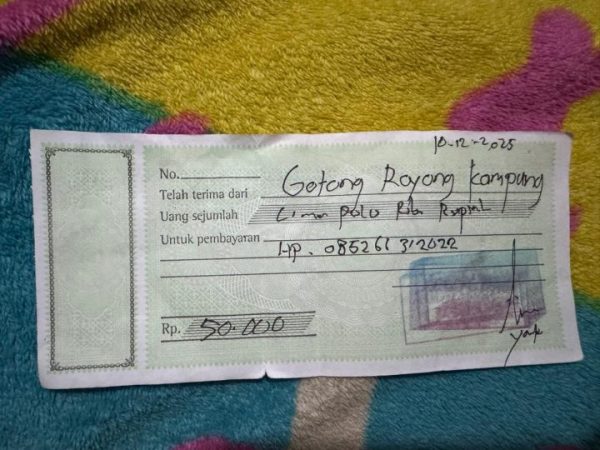 10-12-2025
No.
Telah terima dari Gotong Royong Kampung
Uang sejumlah Lima polo Ribu Rupiah
Untuk pembayaran HP. 085261312022
Rp. 50.000